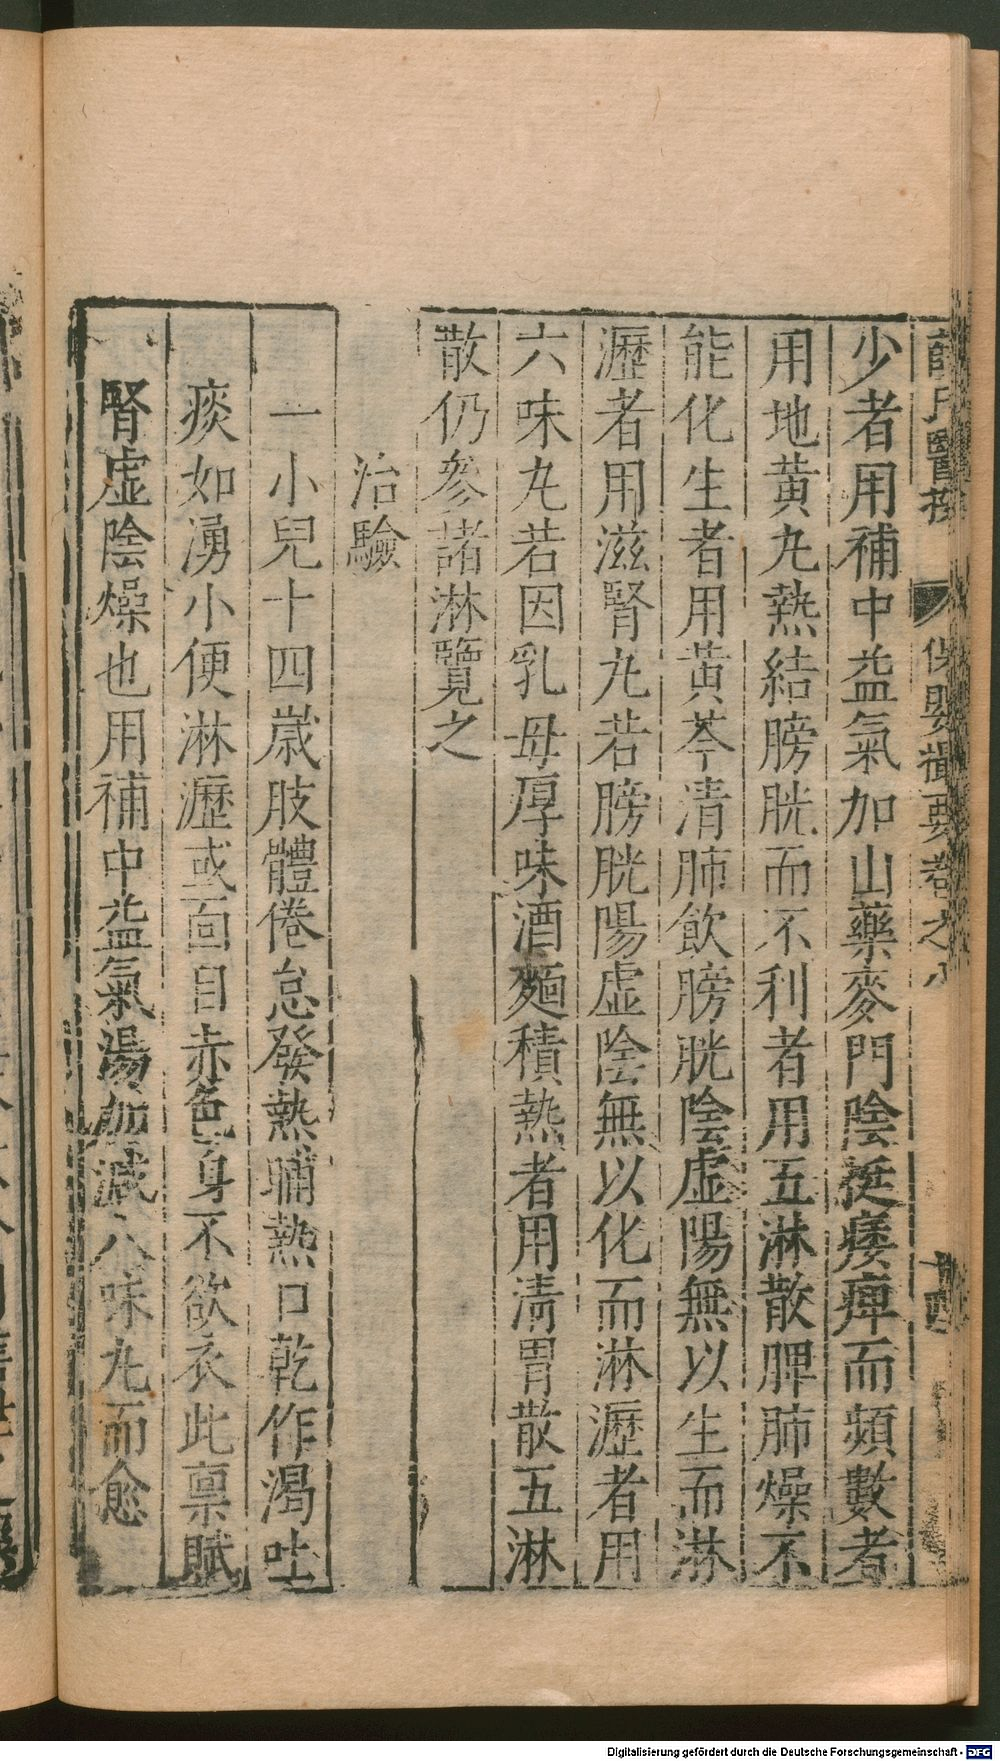 薛氏醫按 保嬰撮要卷之八 十四
少者用補中益氣加山藥麥門陰挺痿痺而頻數者
用地黃丸熱結膀胱而不利者用五淋散脾肺燥不
能化生者用黃芩清肺飲膀胱陰虛陽無以生而淋
瀝者用滋腎丸若膀胱陽虛陰無以化而淋瀝者用
六味丸若因乳母厚味酒麵積熱者用清胃散五淋
散仍參諸淋覽之
治驗
一小兒十四歲肢體倦怠發熱晡熱口乾作渴吐
痰如湧小便淋瀝或面目赤色身不欲衣此稟賦
腎虛陰燥也用補中益氣湯加減八味丸而愈
Digitalisierung gefördert durch die Deutsche Forschungsgemeinschaft - DFG